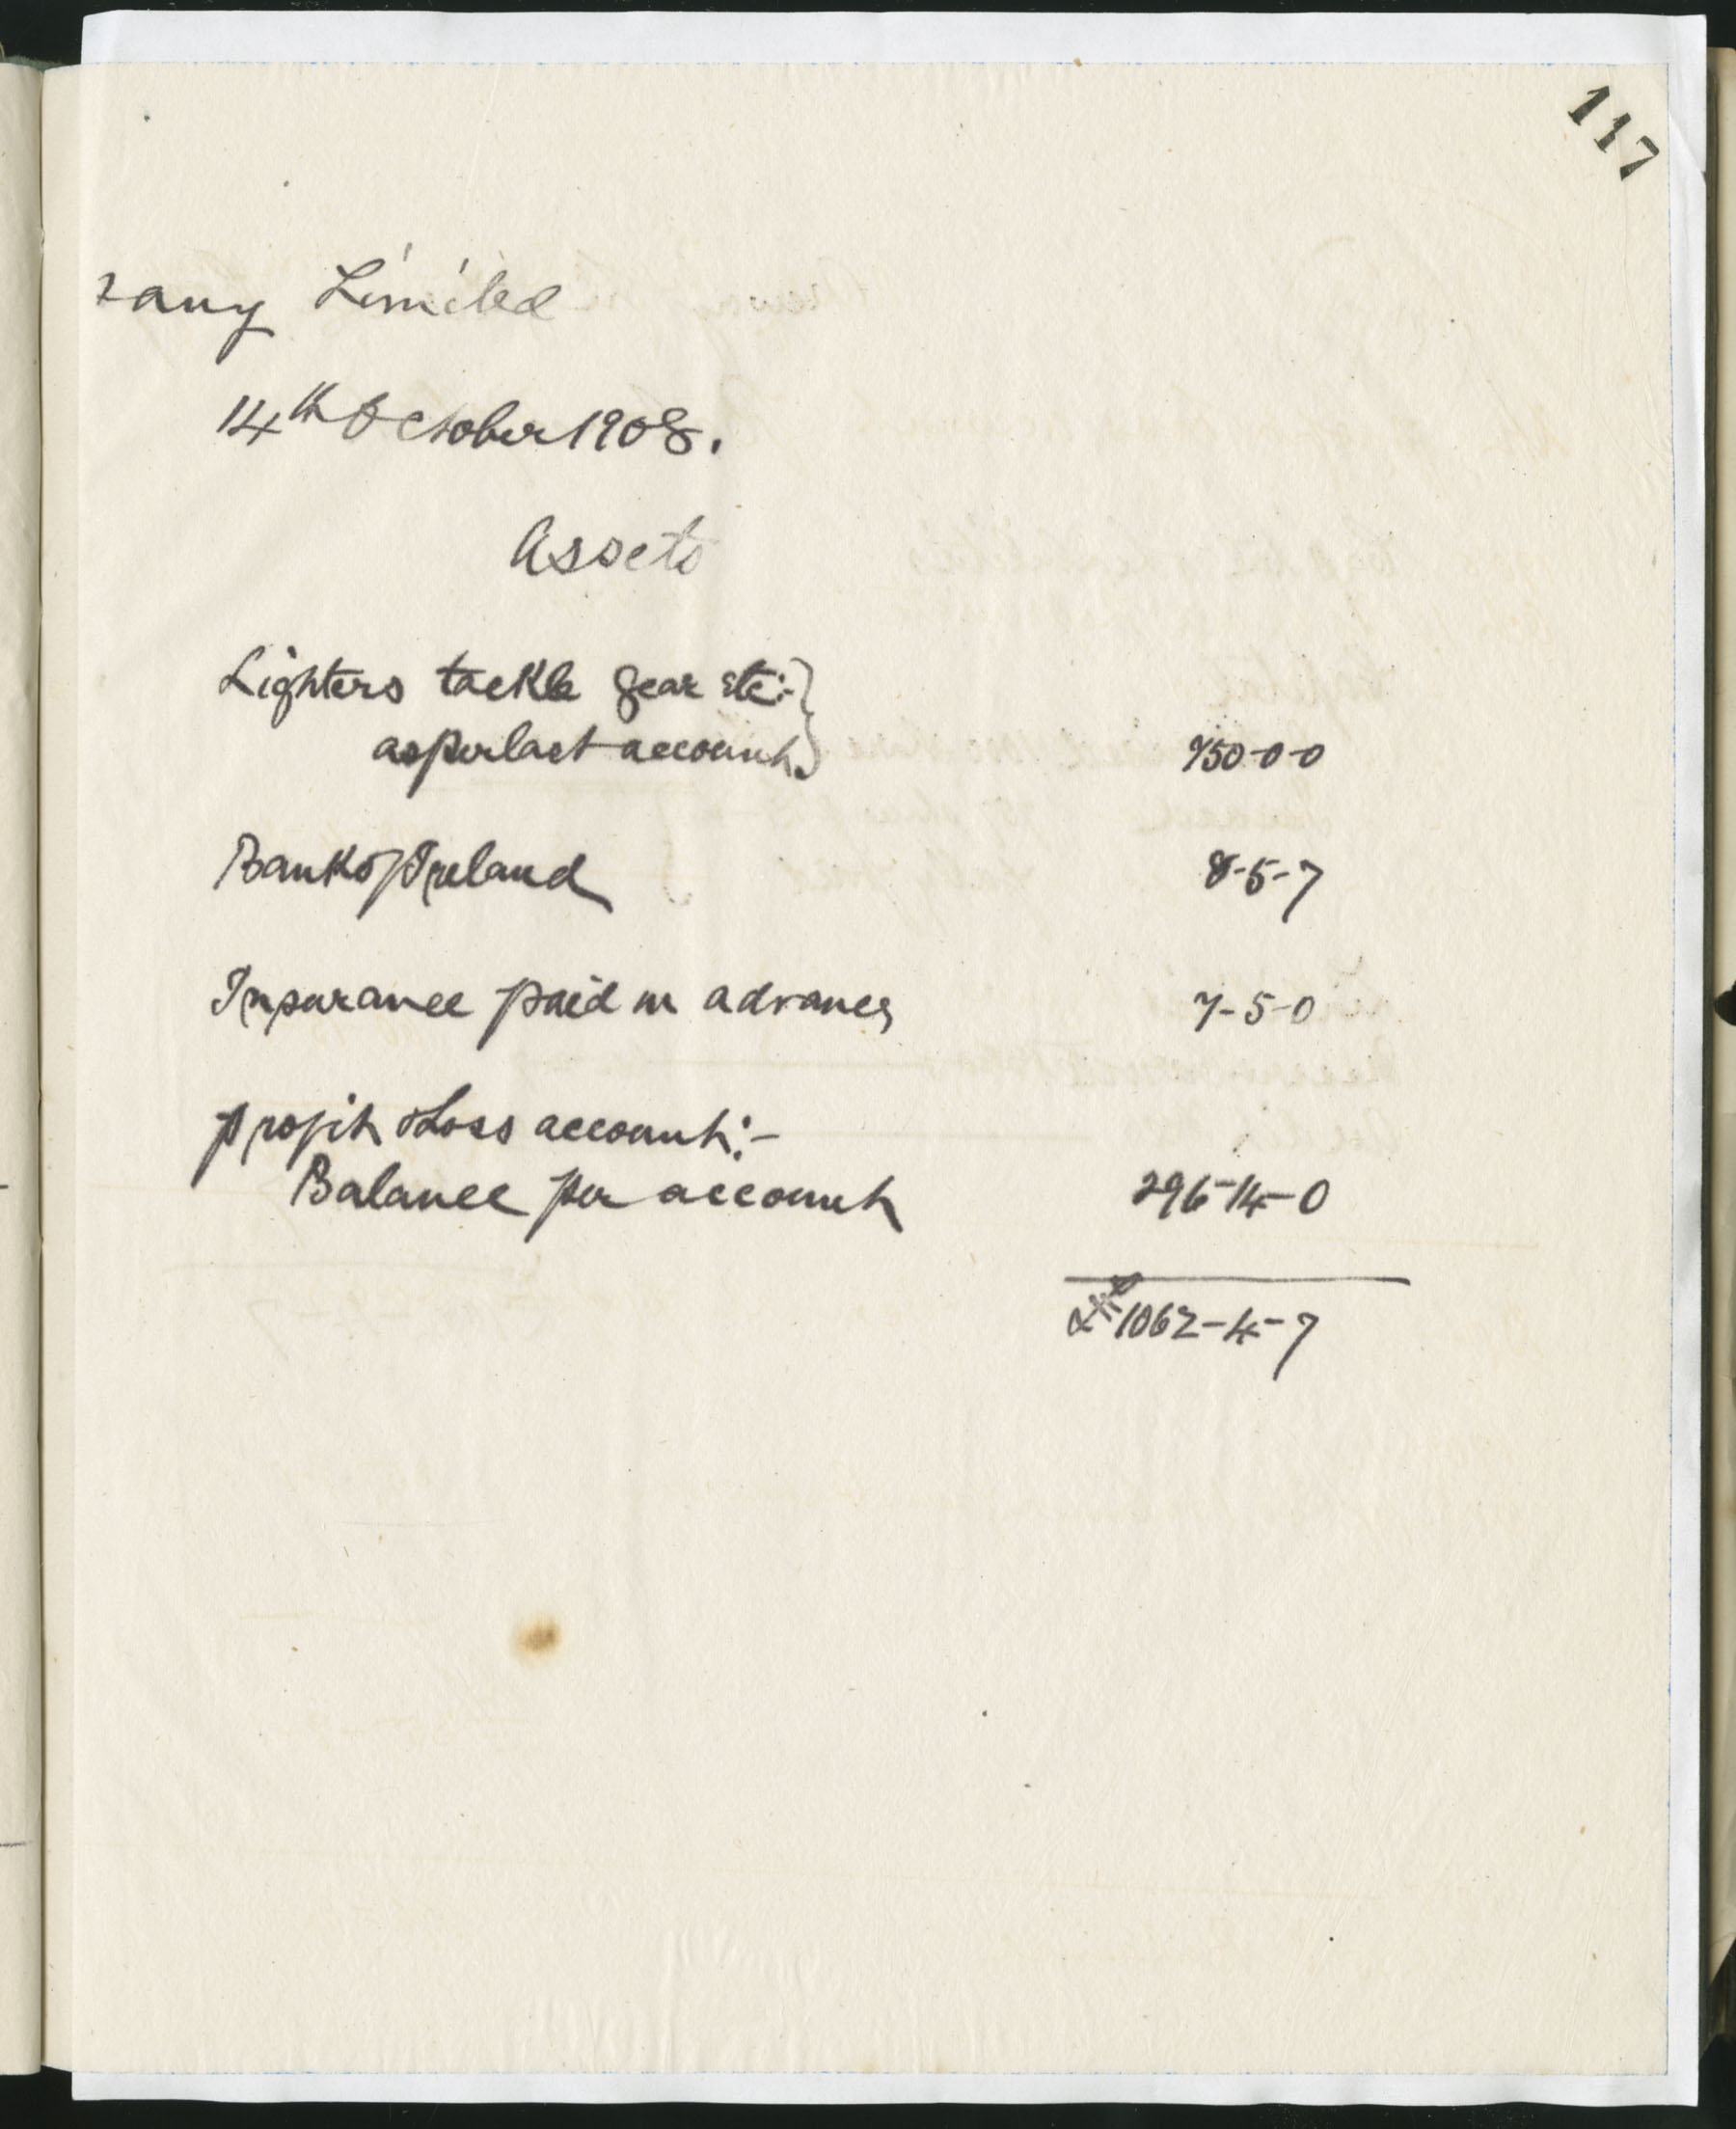 117
pany Limited
14th October 1908.
Assets
Lighters tackle gear etc:-
as per last account. 750-0-0
Bank of Ireland 8-5-7
Insurance paid in advance 7-5-0
profit & Loss account:-
Balance per account 296-14-0
£1062-4-7